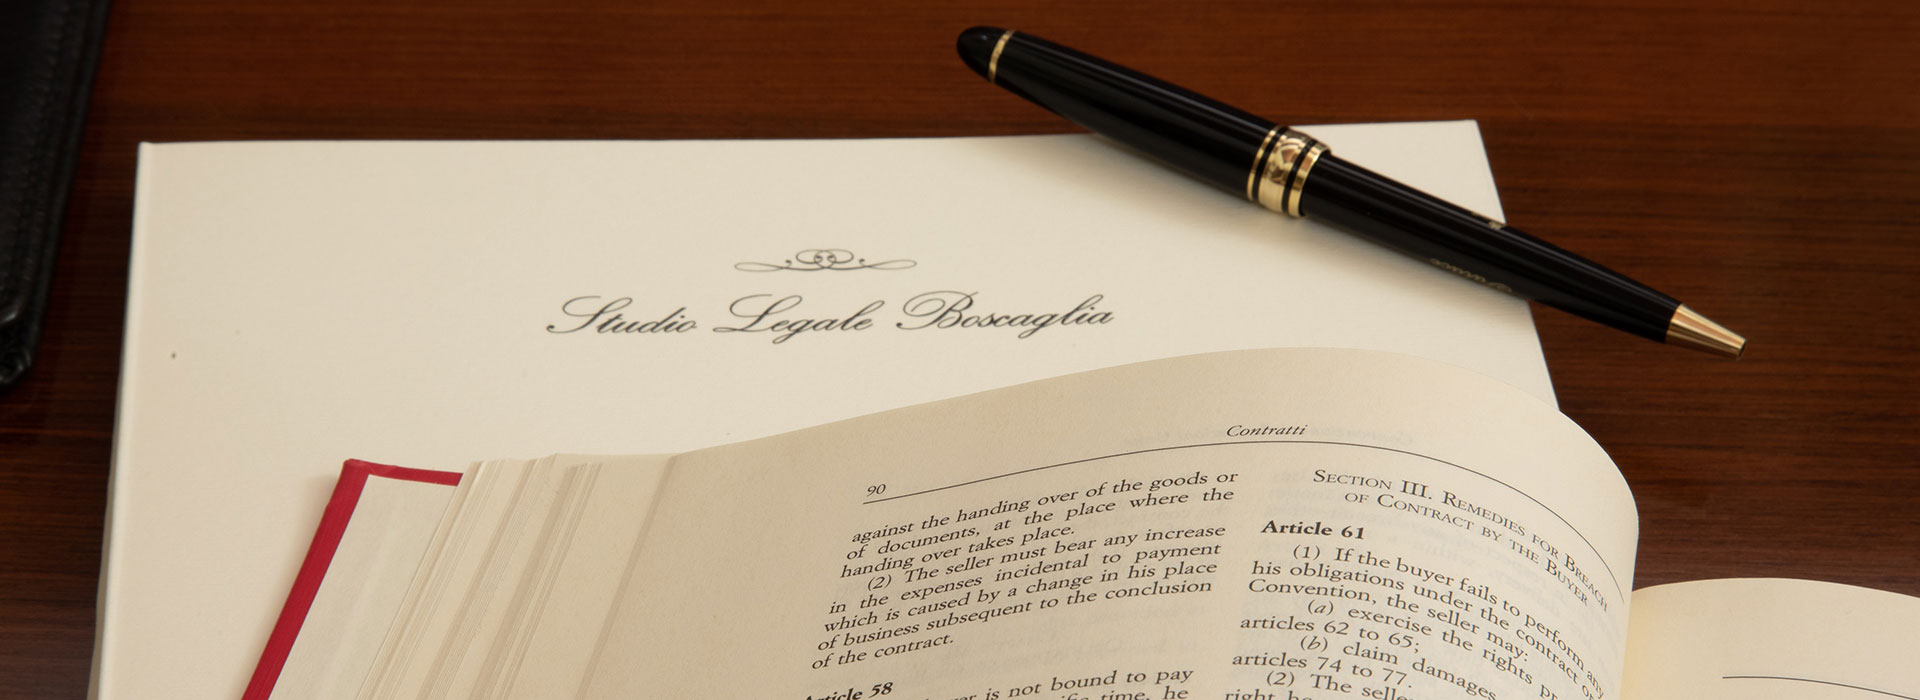 Studio Legale Boscaglia
Contratti
90
against the handing over of the goods or
of documents, at the place where the
handing over takes place.
(2) The seller must bear any increase
in the expenses incidental to payment
which is caused by a change in his place
of business subsequent to the conclusion
of the contract.
Article 58
is not bound to pay
time, he
SECTION III. REMEDIES FOR BREACH
OF CONTRACT BY THE BUYER
Article 61
(1) If the buyer fails to perform any
his obligations under the contract or
Convention, the seller may:
(a) exercise the rights
articles 62 to 65;
(b) claim damages
articles 74 to 77.
(2) The seller
right